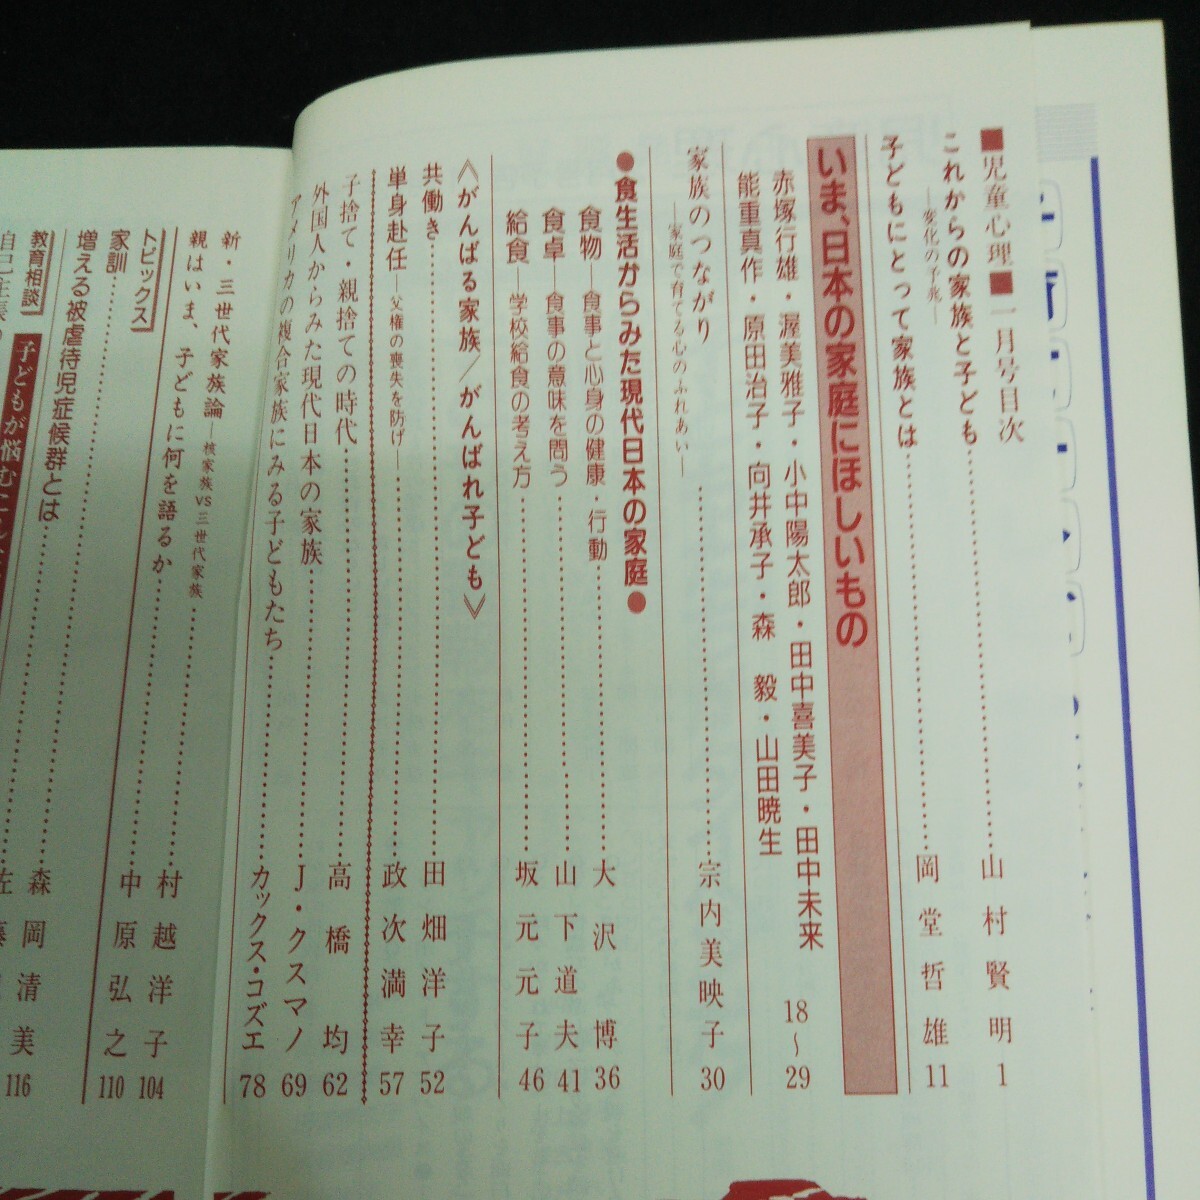 ■児童心理■一月号目次
これからの家族と子ども………山村賢明 1
―変化の予兆―
子どもにとって家族とは………岡堂哲雄 11
いま、日本の家庭にほしいもの
赤塚行雄・渥美雅子・小中陽太郎・田中喜美子・田中未来
能重真作・原田治子・向井承子・森 毅・山田暁生
18〜29
家族のつながり………宗内美映子 30
―家庭で育てる心のふれあい―
●食生活からみた現代日本の家庭●
食物―食事と心身の健康・行動………大沢 博 36
食卓 食事の意味を問う………山下道夫 41
給食―学校給食の考え方………坂元元子 46
《がんばる家族/がんばれ子ども》
共働き………田畑洋子 52
単身赴任―父権の喪失を防げ―………政次満幸 57
子捨て・親捨ての時代………高橋 均 62
外国人からみた現代日本の家族………J・クスマノ 69
アメリカの複合家族にみる子どもたち………カックス・コズエ 78
新・三世代家族論―核家族vs三世代家族………村越洋子 104
親はいま、子どもに何を語るか………中原弘之 110
トピックス
家訓
増える被虐待児症候群とは………森岡清美 116
教育相談
子どもが悩む